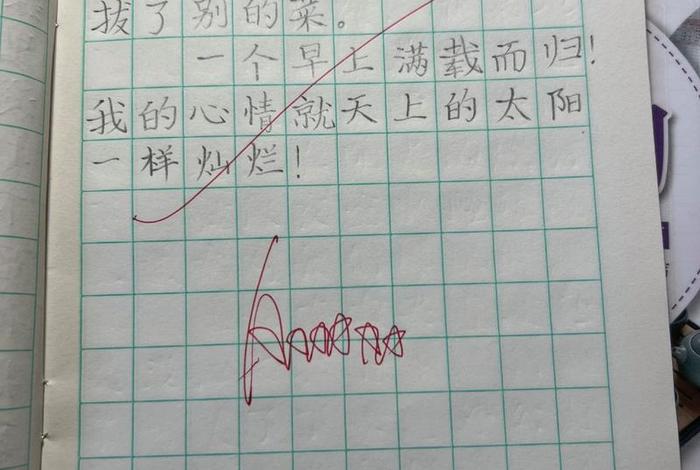 拔了别的菜。
一个早上满载而归！
我的心情就天上的太阳
一样灿烂！